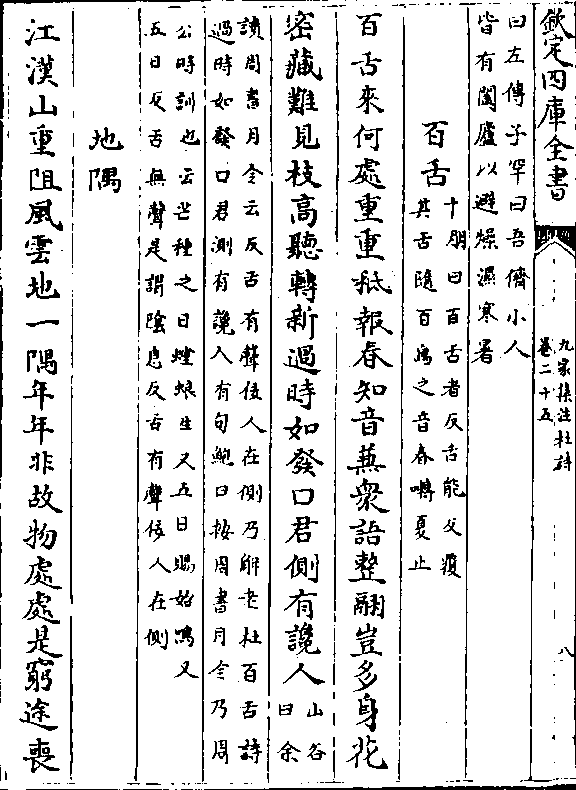 欽定四庫全書
九家集注杜詩
卷二十五
八
曰左傳子罕曰吾儕小人
皆有闔廬以避燥濕寒暑
百舌
十朋曰百舌者反舌能反覆
其舌隨百鳥之音春囀夏止
百舌來何處重重秪報春知音蕪衆語整翮豈多身花
密藏難見枝髙聽轉新過時如發口君側有讒人
山谷
曰余
讀周書月令云反舌有聲佞人在側乃解老杜百舌詩
過時如發口君測有讒人有句鮑曰按周書月令乃周
公時訓也云芒種之日螳蜋生又五日鵙始鳴又
五日反舌無聲是謂陰息反舌有聲佞人在側
地隅
江漢山重阻風雲地一隅年年非故物處處是窮途喪